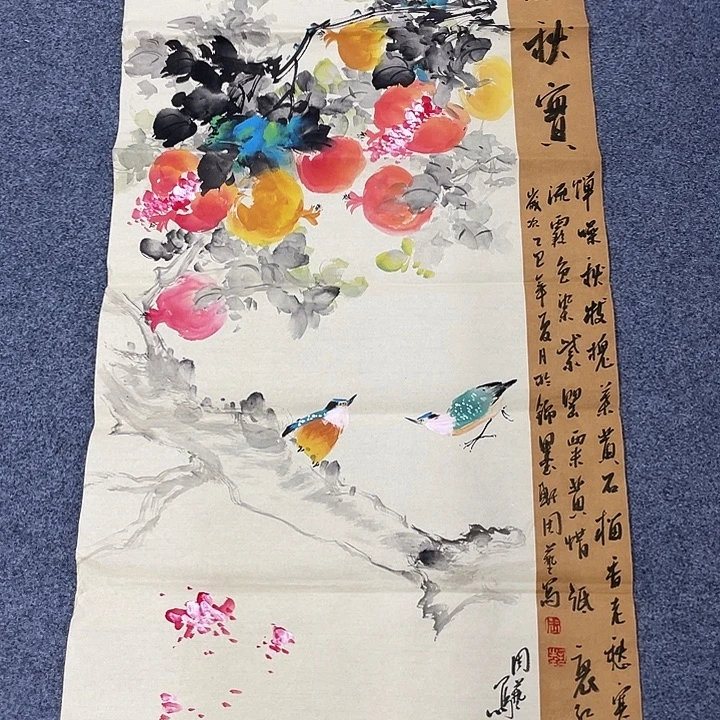 秋實
蟬噪秋枝槐葉黄石榴香老愁寒
流霞色染紫罌粟黄蜡紙裹紅
歲在乙丑年夏月於錦墨軒周藝寫
周藝